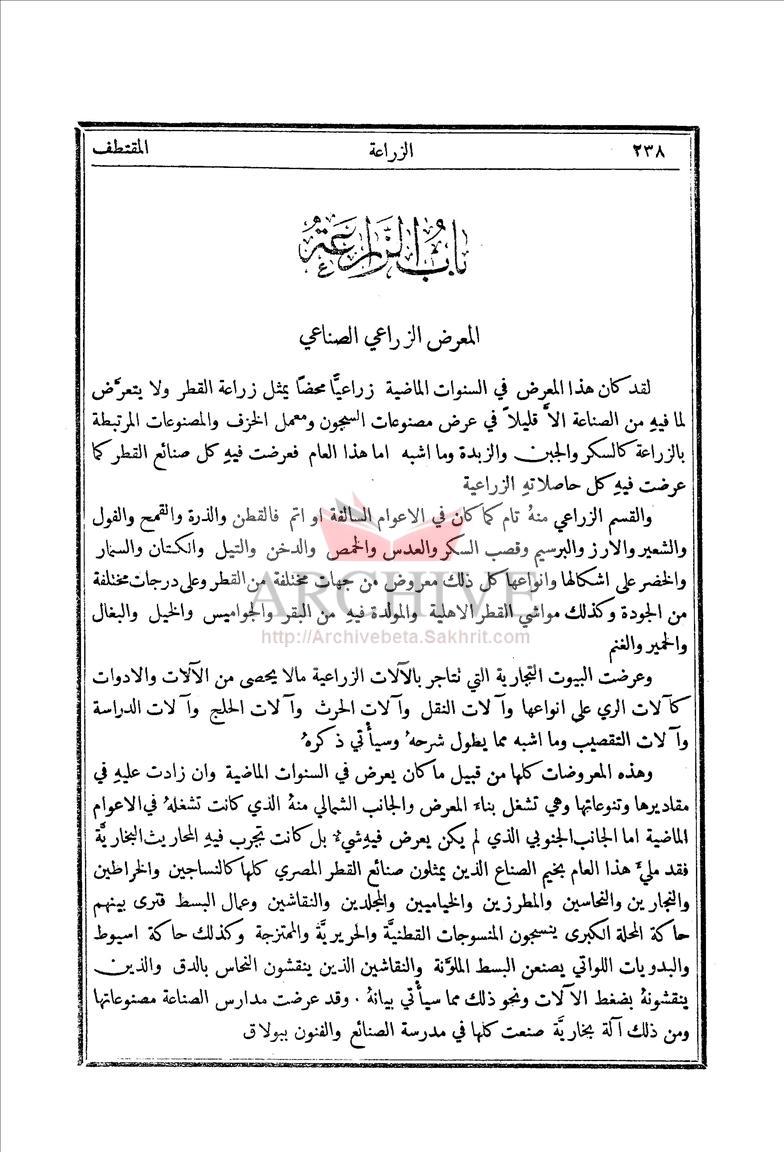 ٢٣٨ الزراعة المقتطف
باب الزراعة
المعرض الزراعي الصناعي
لقد كان هذا المعرض في السنوات الماضية زراعيًّا محضًا يمثل زراعة القطر ولا يتعرَّض
لما فيهِ من الصناعة الاَّ قليلاً في عرض مصنوعات السجون ومعمل الخزف والمصنوعات المرتبطة
بالزراعة كالسكر والجبن والزبدة وما اشبه اما هذا العام فعرضت فيهِ كل صنائع القطر كما
عرضت فيهِ كل حاصلاتهِ الزراعية
والقسم الزراعي منهُ تام كما كان في الاعوام السالفة او اتم فالقطن والذرة والقمح والفول
والشعير والارز والبرسيم وقصب السكر والعدس والحمص والدخن والتيل والكتان والسمار
والخضر على اشكالها وانواعها كل ذلك معروض من جهات مختلفة من القطر وعلى درجات مختلفة
من الجودة وكذلك مواشي القطر الاهلية والمولدة فيهِ من البقر والجواميس والخيل والبغال
والحمير والغنم
وعرضت البيوت التجارية التي نتاجر بالآلات الزراعية مالا يحصى من الآلات والادوات
كآلات الري على انواعها وآلات النقل وآلات الحرث وآلات الحلج وآلات الدراسة
وآلات التقصيب وما اشبه مما يطول شرحهُ وسيأتي ذكرهُ
وهذه المعروضات كلها من قبيل ما كان يعرض في السنوات الماضية وان زادت عليهِ في
مقاديرها وتنوعاتها وهي تشغل بناء المعرض والجانب الشمالي منهُ الذي كانت تشغلهُ في الاعوام
الماضية اما الجانب الجنوبي الذي لم يكن يعرض فيهِ شيءٌ بل كانت تجرب فيهِ المحاريث البخاريَّة
فقد مليءَ هذا العام بخيم الصناع الذين يمثلون صنائع القطر المصري كلها كالنساجين والخراطين
والنجارين والنحاسين والمطرزين والخياميين والمجلدين والنقاشين وعمال البسط فترى بينهم
حاكة المحلة الكبرى ينسجون المنسوجات القطنيَّة والحريريَّة والممتزجة وكذلك حاكة اسيوط
والبدويات اللواتي يصنعن البسط الملوَّنة والنقاشين الذين ينقشون النحاس بالدق والذين
ينقشونهُ بضغط الآلات ونحو ذلك مما سيأتي بيانهُ . وقد عرضت مدارس الصناعة مصنوعاتها
ومن ذلك آلة بخاريَّة صنعت كلها في مدرسة الصنائع والفنون ببولاق
ARCHIVE
http://Archivebeta.Sakhrit.com